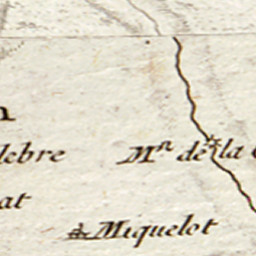 n
lebre
Mn de la
at
Miquelot